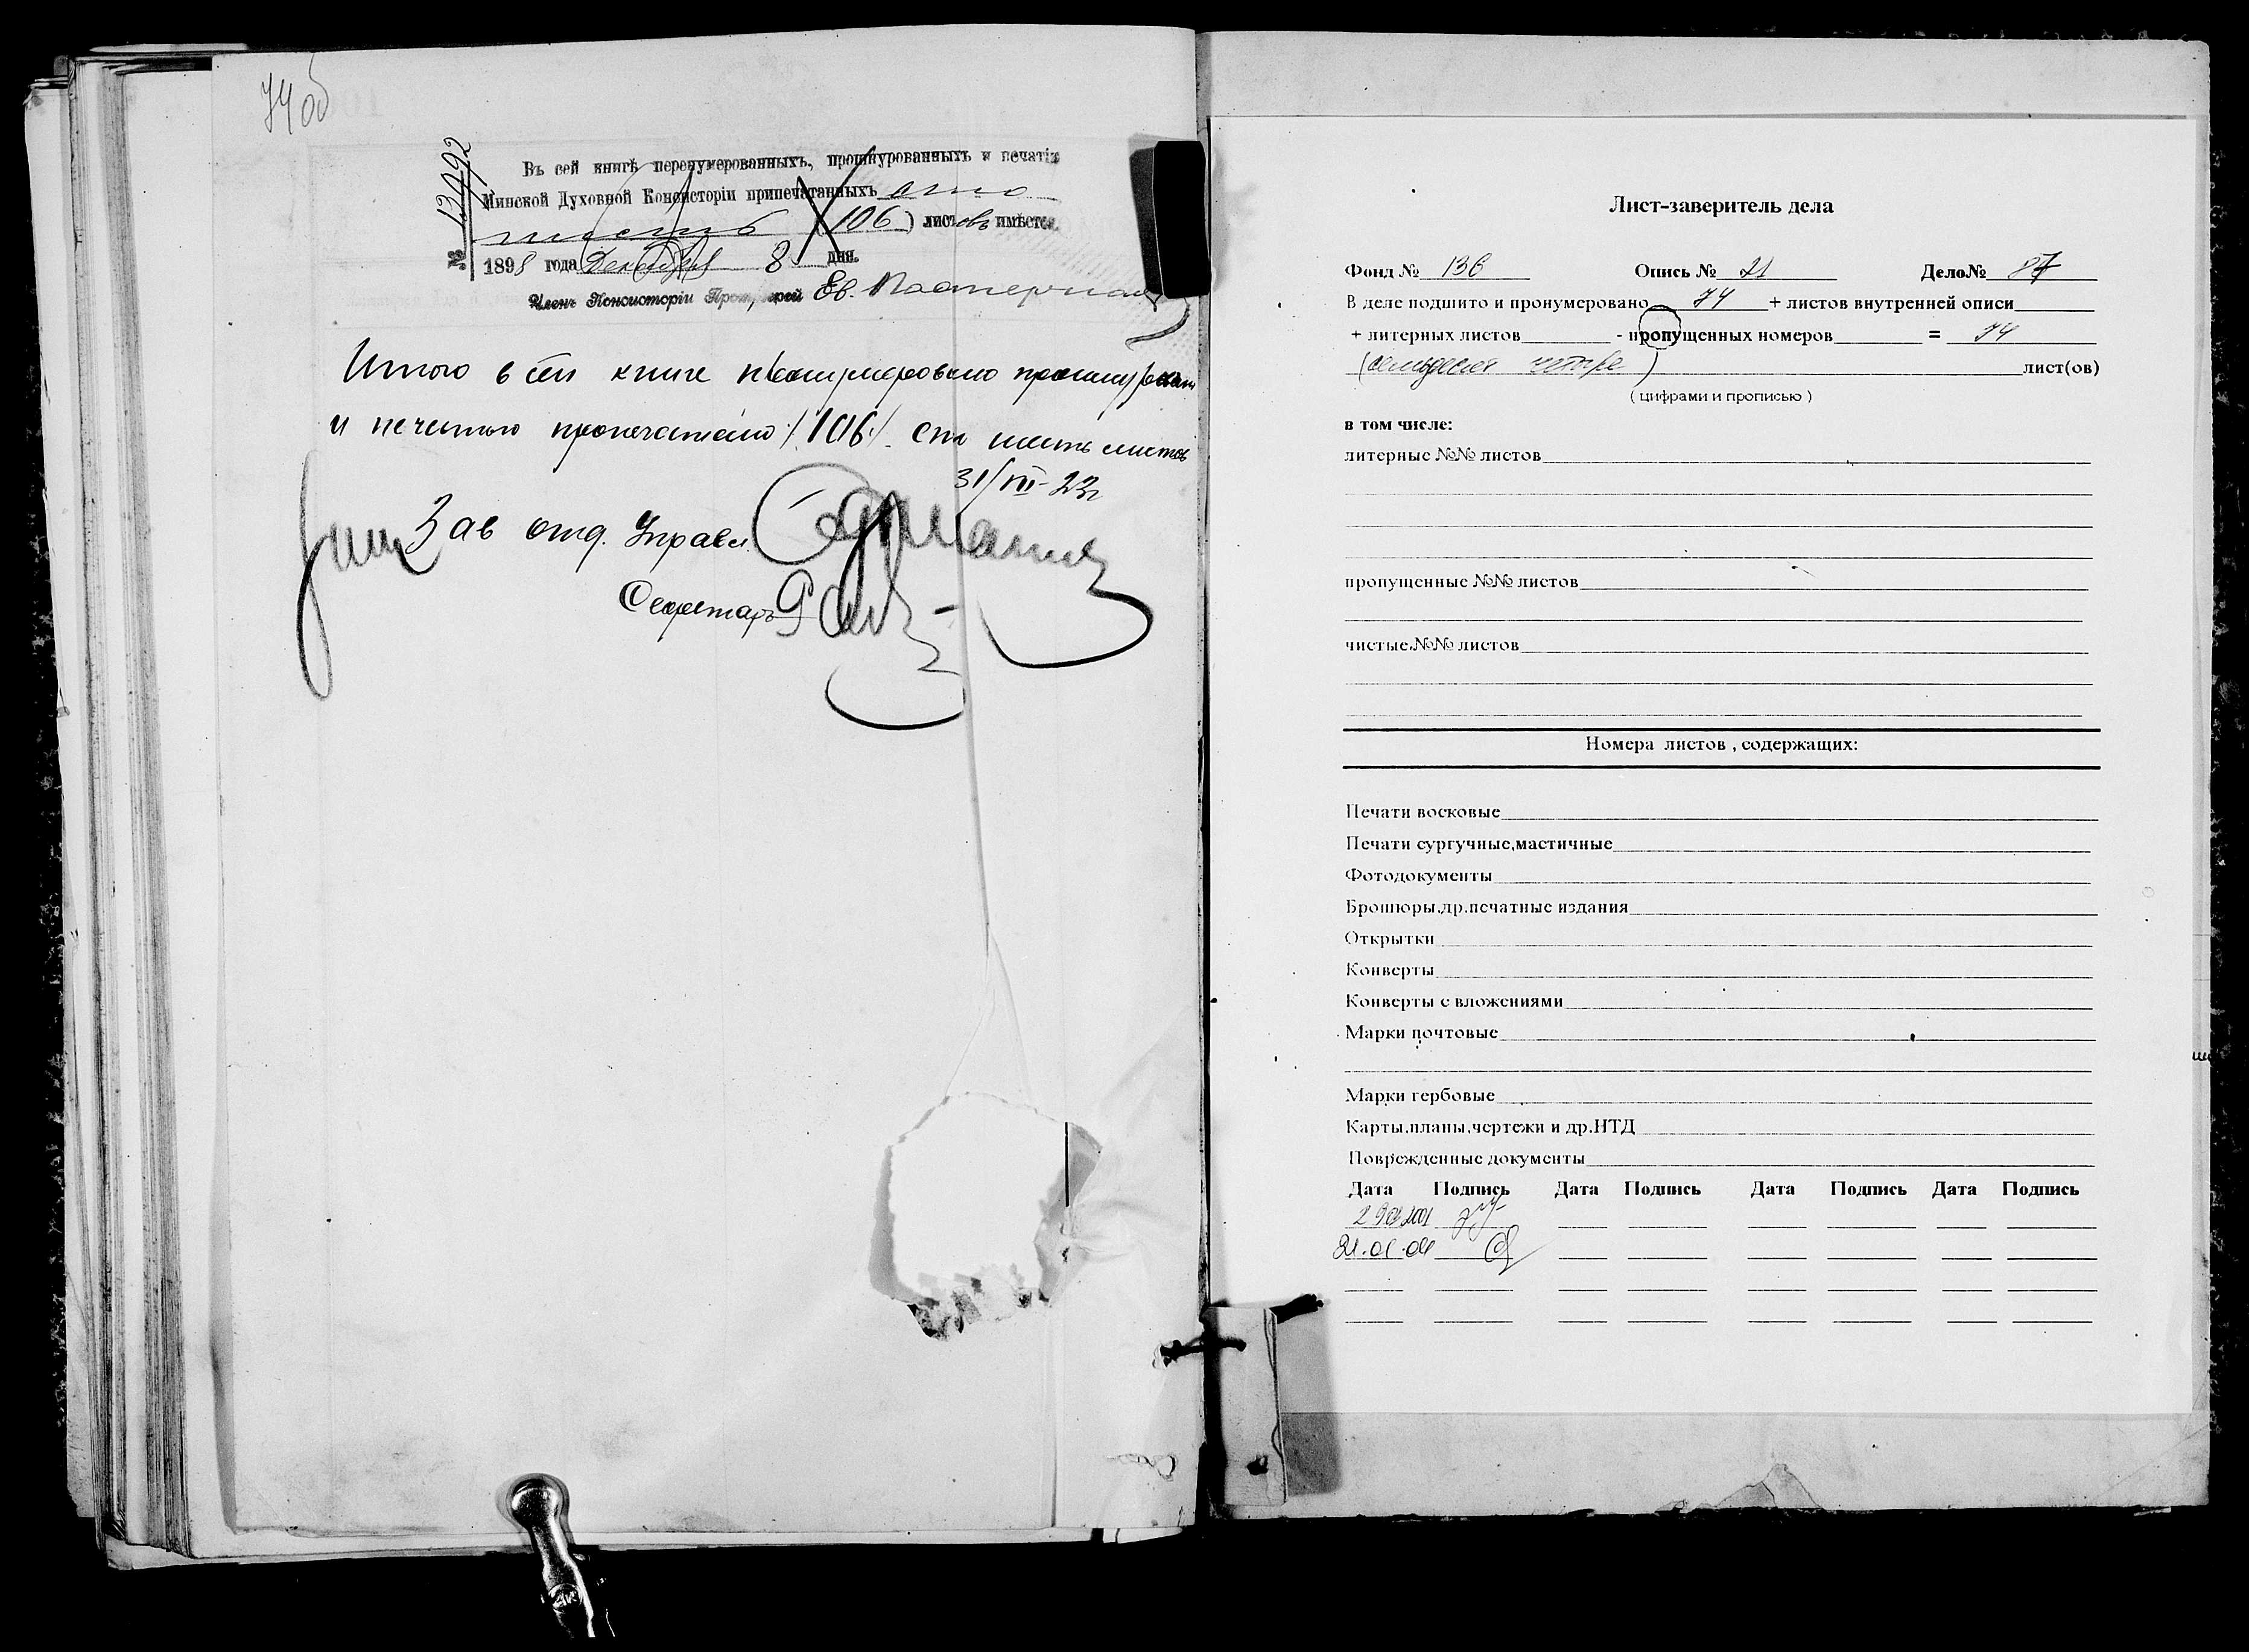 74 об
№ 13992
Въ сей книгѣ перенумерованныхъ, прошнурованныхъ и печатію
Минской Духовной Консисторіи припечатанныхъ сто
шесть (106) листовъ имѣется.
1898 года Декабря 8 дня.
Членъ Консисторіи Прот,ерей Ев.
Итого в сей книге пронумеровано прошнуровано
и печатью пропечатано /106/ сто шесть листов
31/VII-23г
Зав отд. Управл.
Секретарь
Лист-заверитель дела
Фонд № 136 Опись № 21 Дело№ 87
В деле подшито и пронумеровано 74 + листов внутренней описи
+ литерных листов - пропущенных номеров = 74
(семьдесят четыре) лист(ов)
( цифрами и прописью )
в том числе:
литерные №№ листов
пропущенные №№ листов
чистые.№№ листов
Номера листов , содержащих:
Печати восковые
Печати сургучные,мастичные
Фотодокументы
Брошюры,др.печатные издания
Открытки
Конверты
Конверты с вложениями
Марки почтовые
Марки гербовые
Карты,планы,чертежи и др.НТД
Поврежденные документы
Дата Подпись Дата Подпись Дата Подпись Дата Подпись